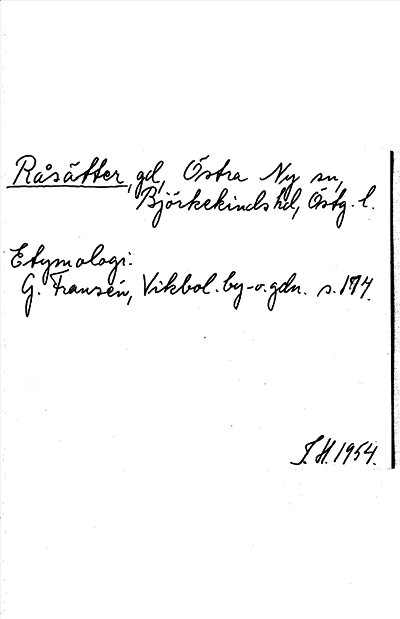 Råsätter, gd, Östra Ny sn,
Björkekinds hd, Östg. l.
Etymologi:
G. Fransén, Vikbol. by- o. gdn. s. 174.
J. H. 1954.